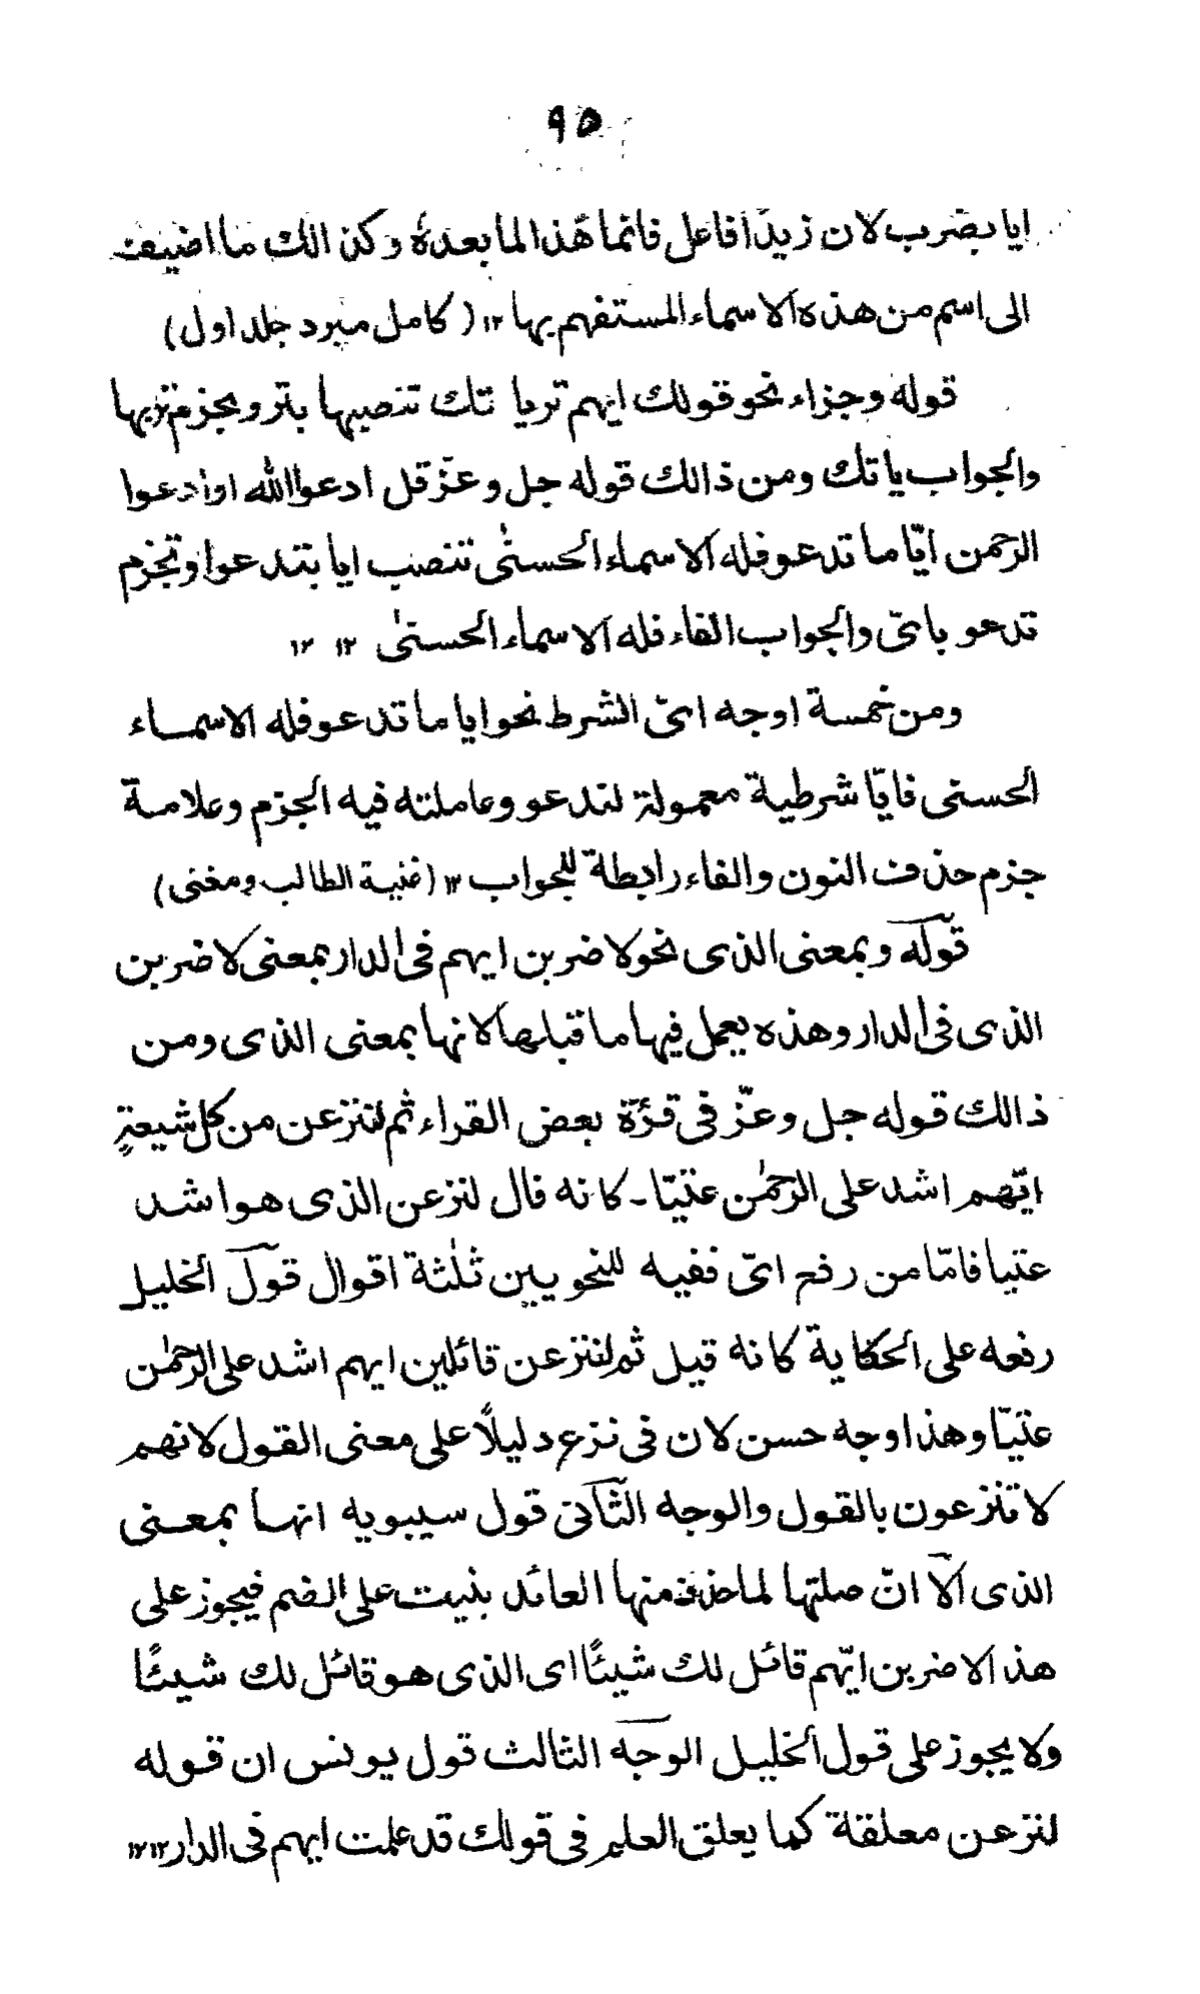 ٩٥
ايا بضرب لان زيدًا فاعل فانما هٰذا لما بعده وكذالك ما اضيف
الى اسم من هذه الاسماء المستفهم بها ١٢ (كامل مبرد جلد اول)
قوله وجزاء نحو قولك ايهم تر يا تك تنصبها بتر و بجزم تر بها
والجواب ياتك ومن ذالك قوله جل وعزّ قل ادعوا الله او ادعوا
الرحمن ايّاما تدعو فله الاسماء الحسنٰى تنصب ايا بتدعوا وتجزم
تدعو باىّ والجواب الفاء فله الاسماء الحسنٰى ١٢ ١٢
ومن خمسة اوجه اىّ الشرط نحو ايا ما تدعو فله الاسماء
الحسنى فايّا شرطية معمولة لتدعو وعاملته فيه الجزم وعلامة
جزم حذف النون والفاء رابطة للجواب ١٢ (غنية الطالب ومغنى)
قوله وبمعنى الذى نحو لاضربن ايهم فى الدار بمعنى لاضربن
الذى فى الدار وهذه يعمل فيها ما قبلها لانها بمعنى الذى ومن
ذالك قوله جل وعزّ فى قرّة بعض القراء ثم لننزعن من كل شيعةٍ
ايّهم اشد على الرحمٰن عتيّا ـ كانه قال لنزعن الذى هو اشد
عتيا فامّا من رفع اىّ ففيه للنحويين ثلٰثة اقوال قول الخليل
رفعه على الحكاية كانه قيل ثم لننزعن قائلين ايهم اشد على الرحمٰن
عتيّا وهذا وجه حسن لان فى نزع دليلًا على معنى القول لانهم
لا تنزعون بالقول والوجه الثانى قول سيبويه انها بمعنى
الذى الّا انّ صلتها لما حذف منها العائد بنيت على الضم فيجوز على
هذا لاضربن ايّهم قائل لك شيئًا اى الذى هو قائل لك شيئًا
ولا يجوز على قول الخليل الوجه الثالث قول يونس ان قوله
لنزعن معلقة كما يعلق العلم فى قولك قد علمت ايهم فى الدار ١٢ ١٢